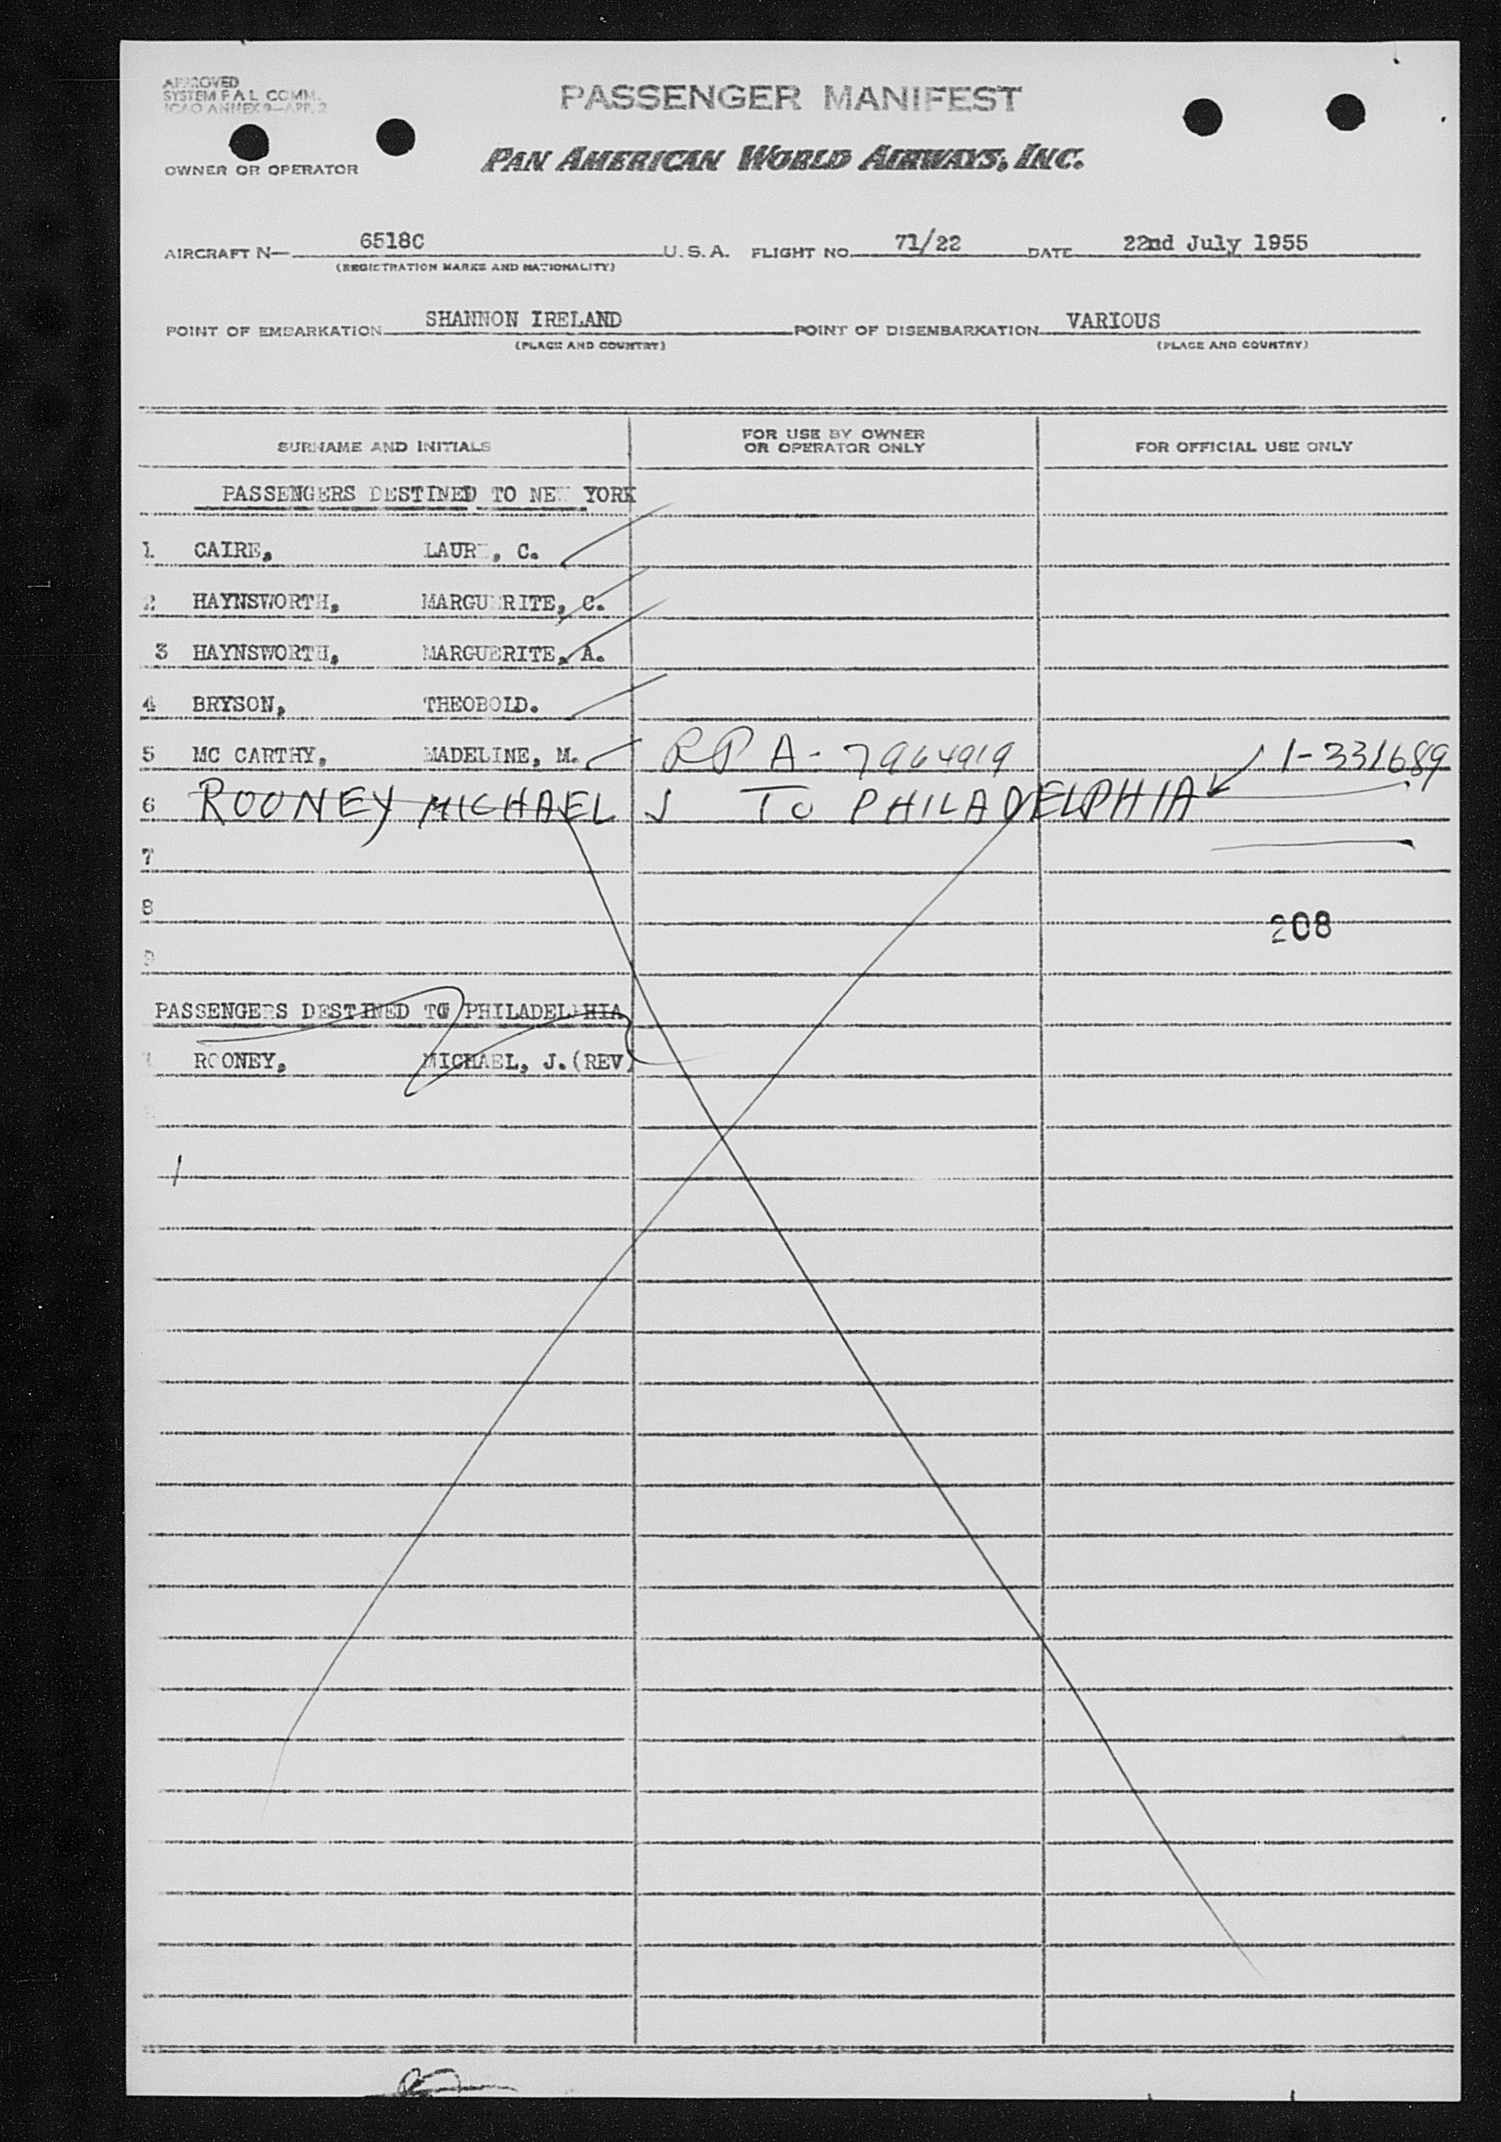 APPROVED
SYSTEM F A L COMM.
ICAO ANNEX 9—APP. 2
PASSENGER MANIFEST
OWNER OR OPERATOR PAN AMERICAN WORLD AIRWAYS, INC.
AIRCRAFT N— 6518C U.S.A. FLIGHT NO. 71/22 DATE 22nd July 1955
(REGISTRATION MARKS AND NATIONALITY)
POINT OF EMBARKATION SHANNON IRELAND POINT OF DISEMBARKATION VARIOUS
(PLACE AND COUNTRY) (PLACE AND COUNTRY)
SURNAME AND INITIALS FOR USE BY OWNER OR OPERATOR ONLY FOR OFFICIAL USE ONLY
PASSENGERS DESTINED TO NEW YORK
1 CAIRE, LAUR, C.
2 HAYNSWORTH, MARGUERITE, C.
3 HAYNSWORTH, MARGUERITE, A.
4 BRYSON, THEOBOLD.
5 MC CARTHY, MADELINE, M. RP A-7964919 1-331689
6 ROONEY MICHAEL J TO PHILADELPHIA
7
8
208
9
PASSENGERS DESTINED TO PHILADELPHIA
ROONEY, MICHAEL, J.(REV)